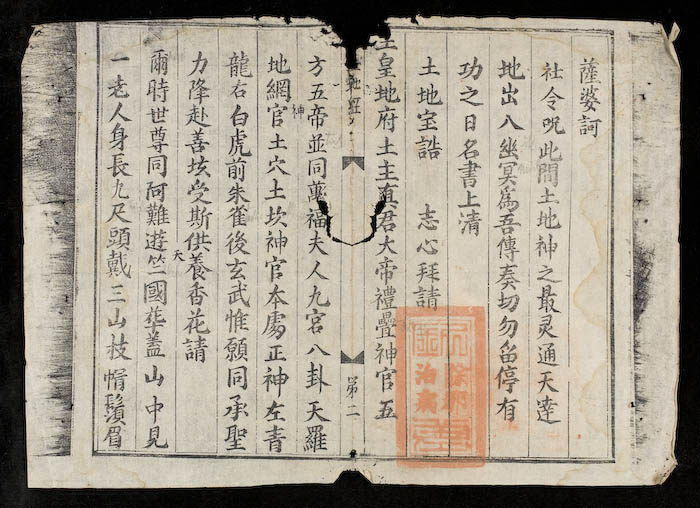 薩婆訶
社令呪此間土地神之最灵通天達
地出八幽冥爲吾傳奏切勿留停有
功之日名書上清
土地宝誥　志心拜請
皇地府土主真君大帝禮疊神官五
第二
方五帝並同萬福夫人九宫八卦天羅
神
地網官土穴土坎神官本䖏正神左青
龍右白虎前朱雀後玄武惟願同承聖
力降赴善垓受斯供養香花請
天
爾時世尊同阿難遊竺國華盖山中見
一老人身長九尺頭戴三山枝帽鬚眉